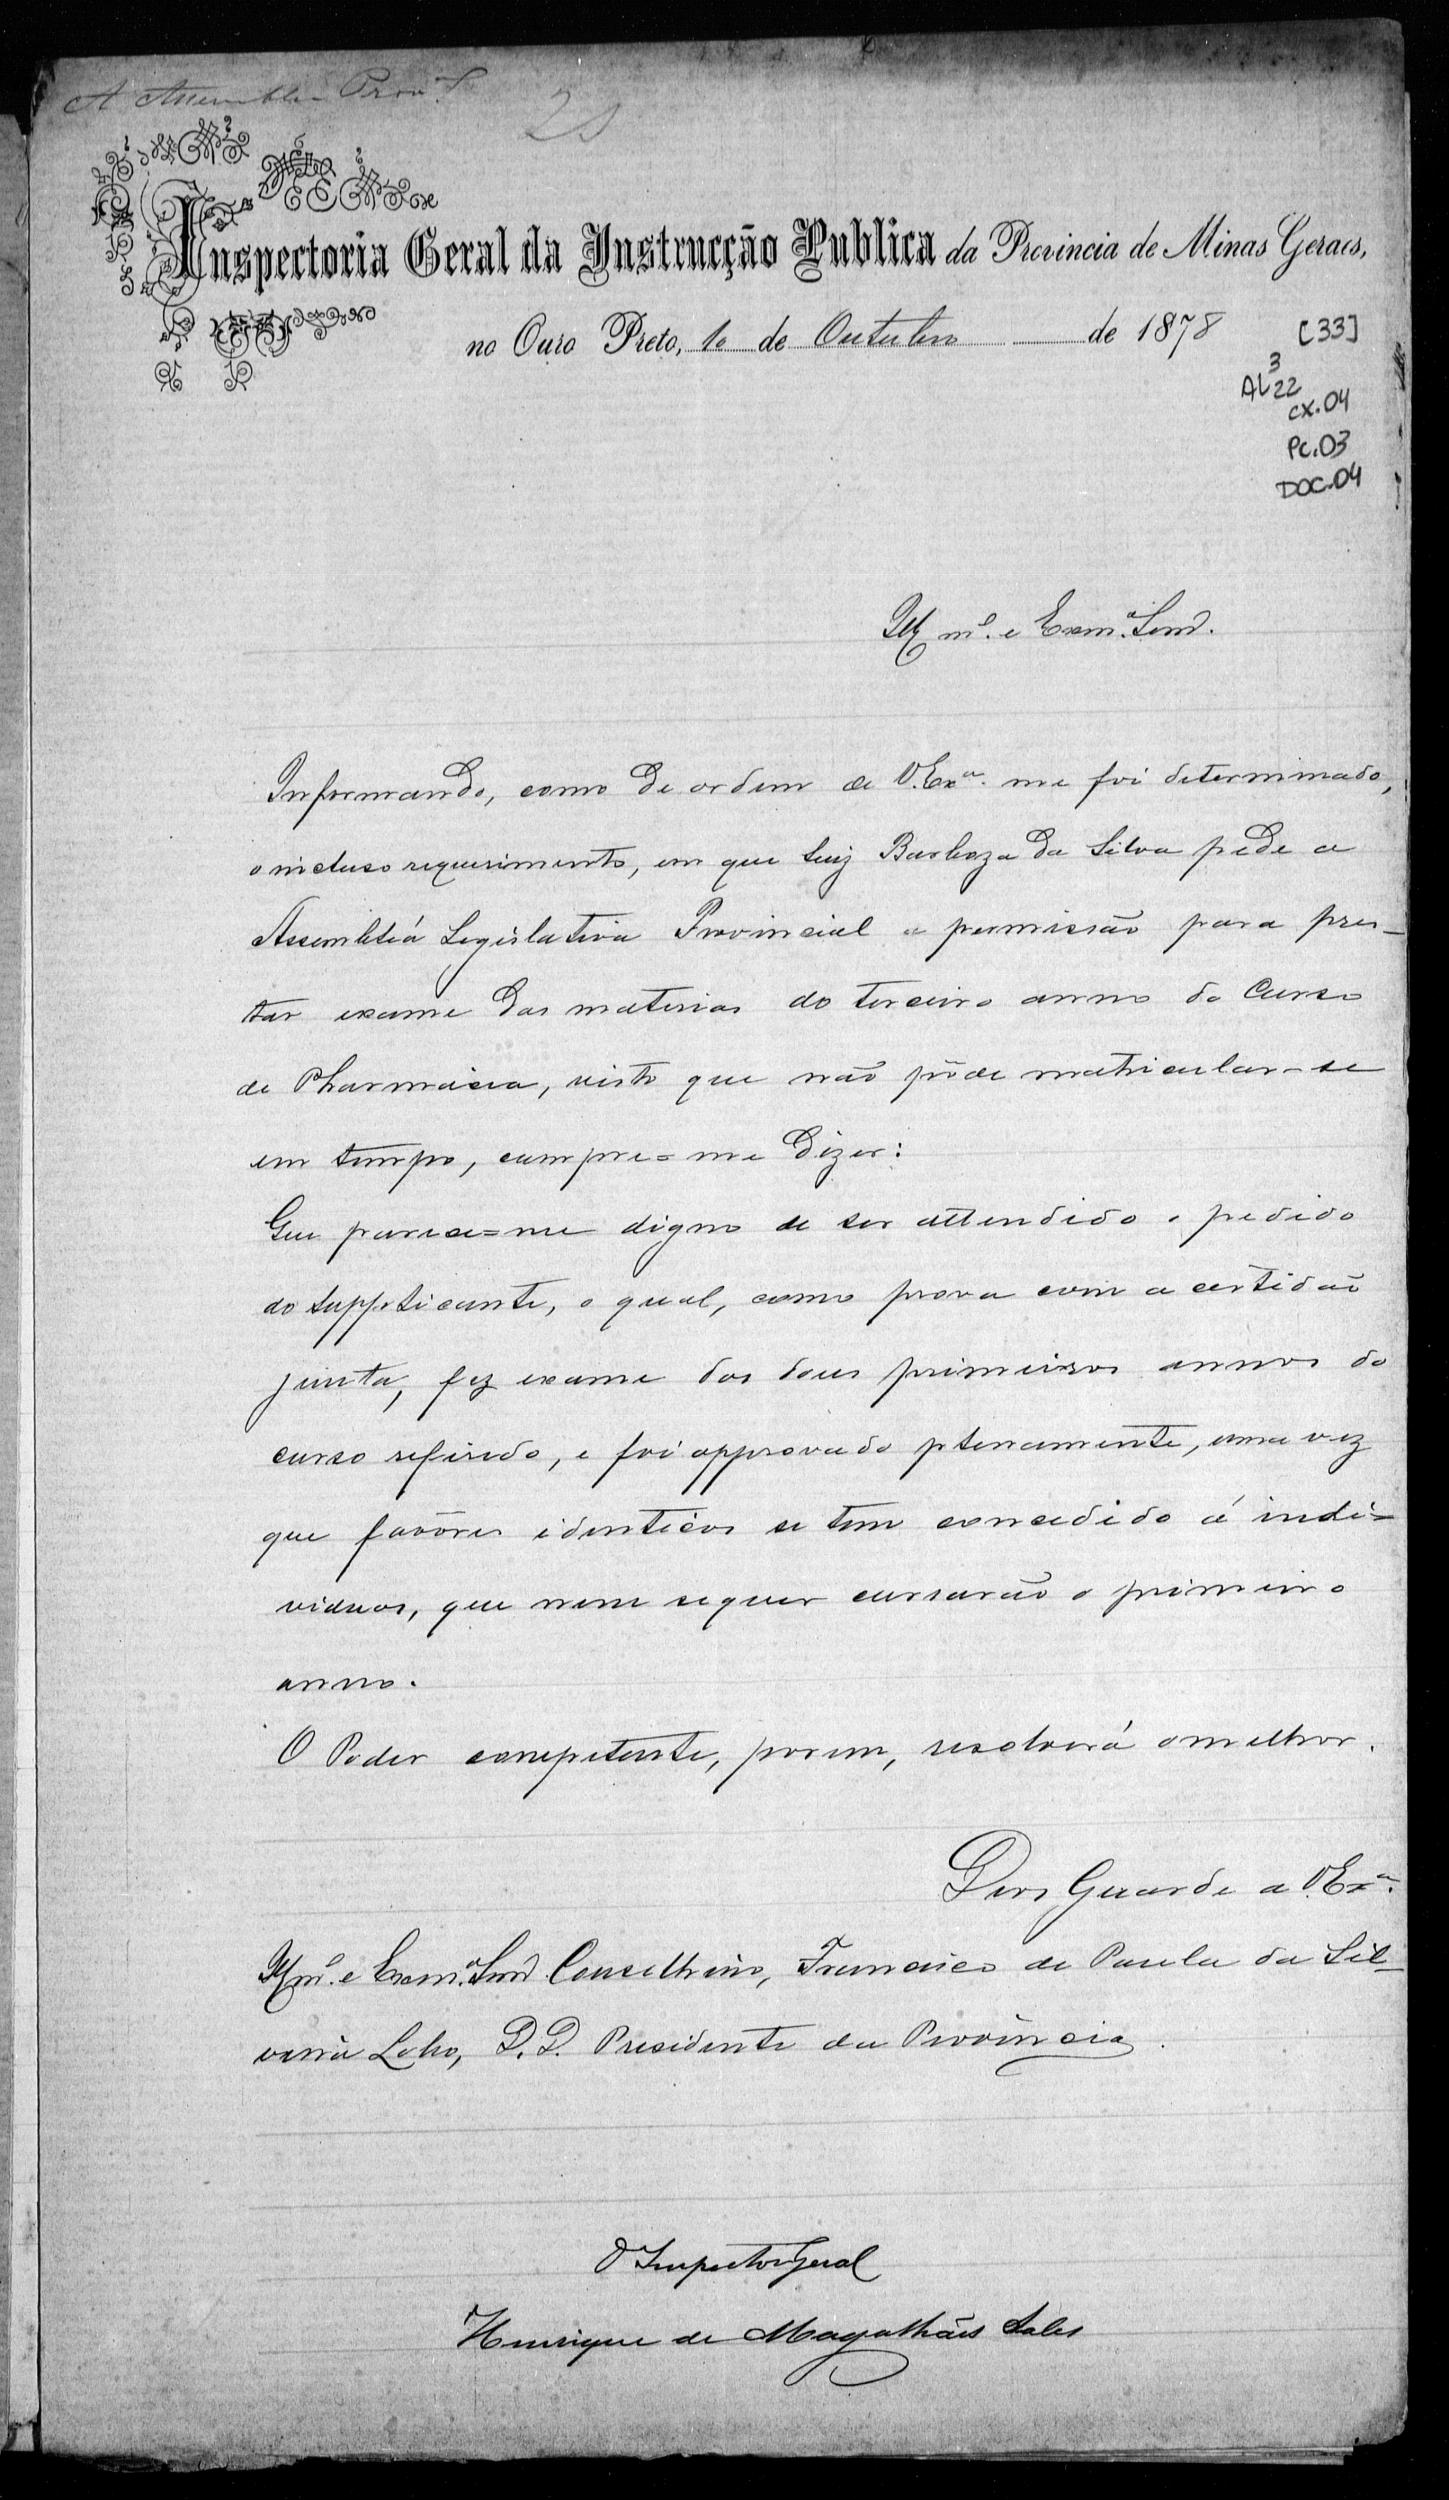 A Assemblea Prov.al
Inspectoria Geral da Instrucção Publica da Provincia de Minas Geraes,
no Ouro Preto, 1o de Outubro de 1878
[33]
3
AL 22
cx.04
Pc.03
DOC.04
Illmo. e Exmo. Senr.
Informando, como de ordem de V.Exa. me foi determinado,
o incluso requerimento, em que Luiz Barboza da Silva pede a
Assembléa Legislativa Provincial a permissão para pres-
tar exame das materias do terceiro anno do Curso
de Pharmacia, visto que não pôde matricular-se
em tempo, cumpre=me dizer:
Que parece=me digno de ser attendido o pedido
do supplicante, o qual, como prova com a certidão
junta, fez exame dos dous primeiros annos do
curso referido, e foi approvado plenamente, uma vez
que favôres identicos se tem concedido á indi=
viduos, que nem sequer cursarão o primeiro
anno.
O Poder competente, porem, resolverá o melhor.
Deos Guarde a V.Exa.
Illmo. e Exmo. Senr. Conselheiro, Francisco de Paula da Sil-
veira Lobo, D.D. Presidente da Provincia.
O Inspector Geral
Henrique de Magalhães Sales